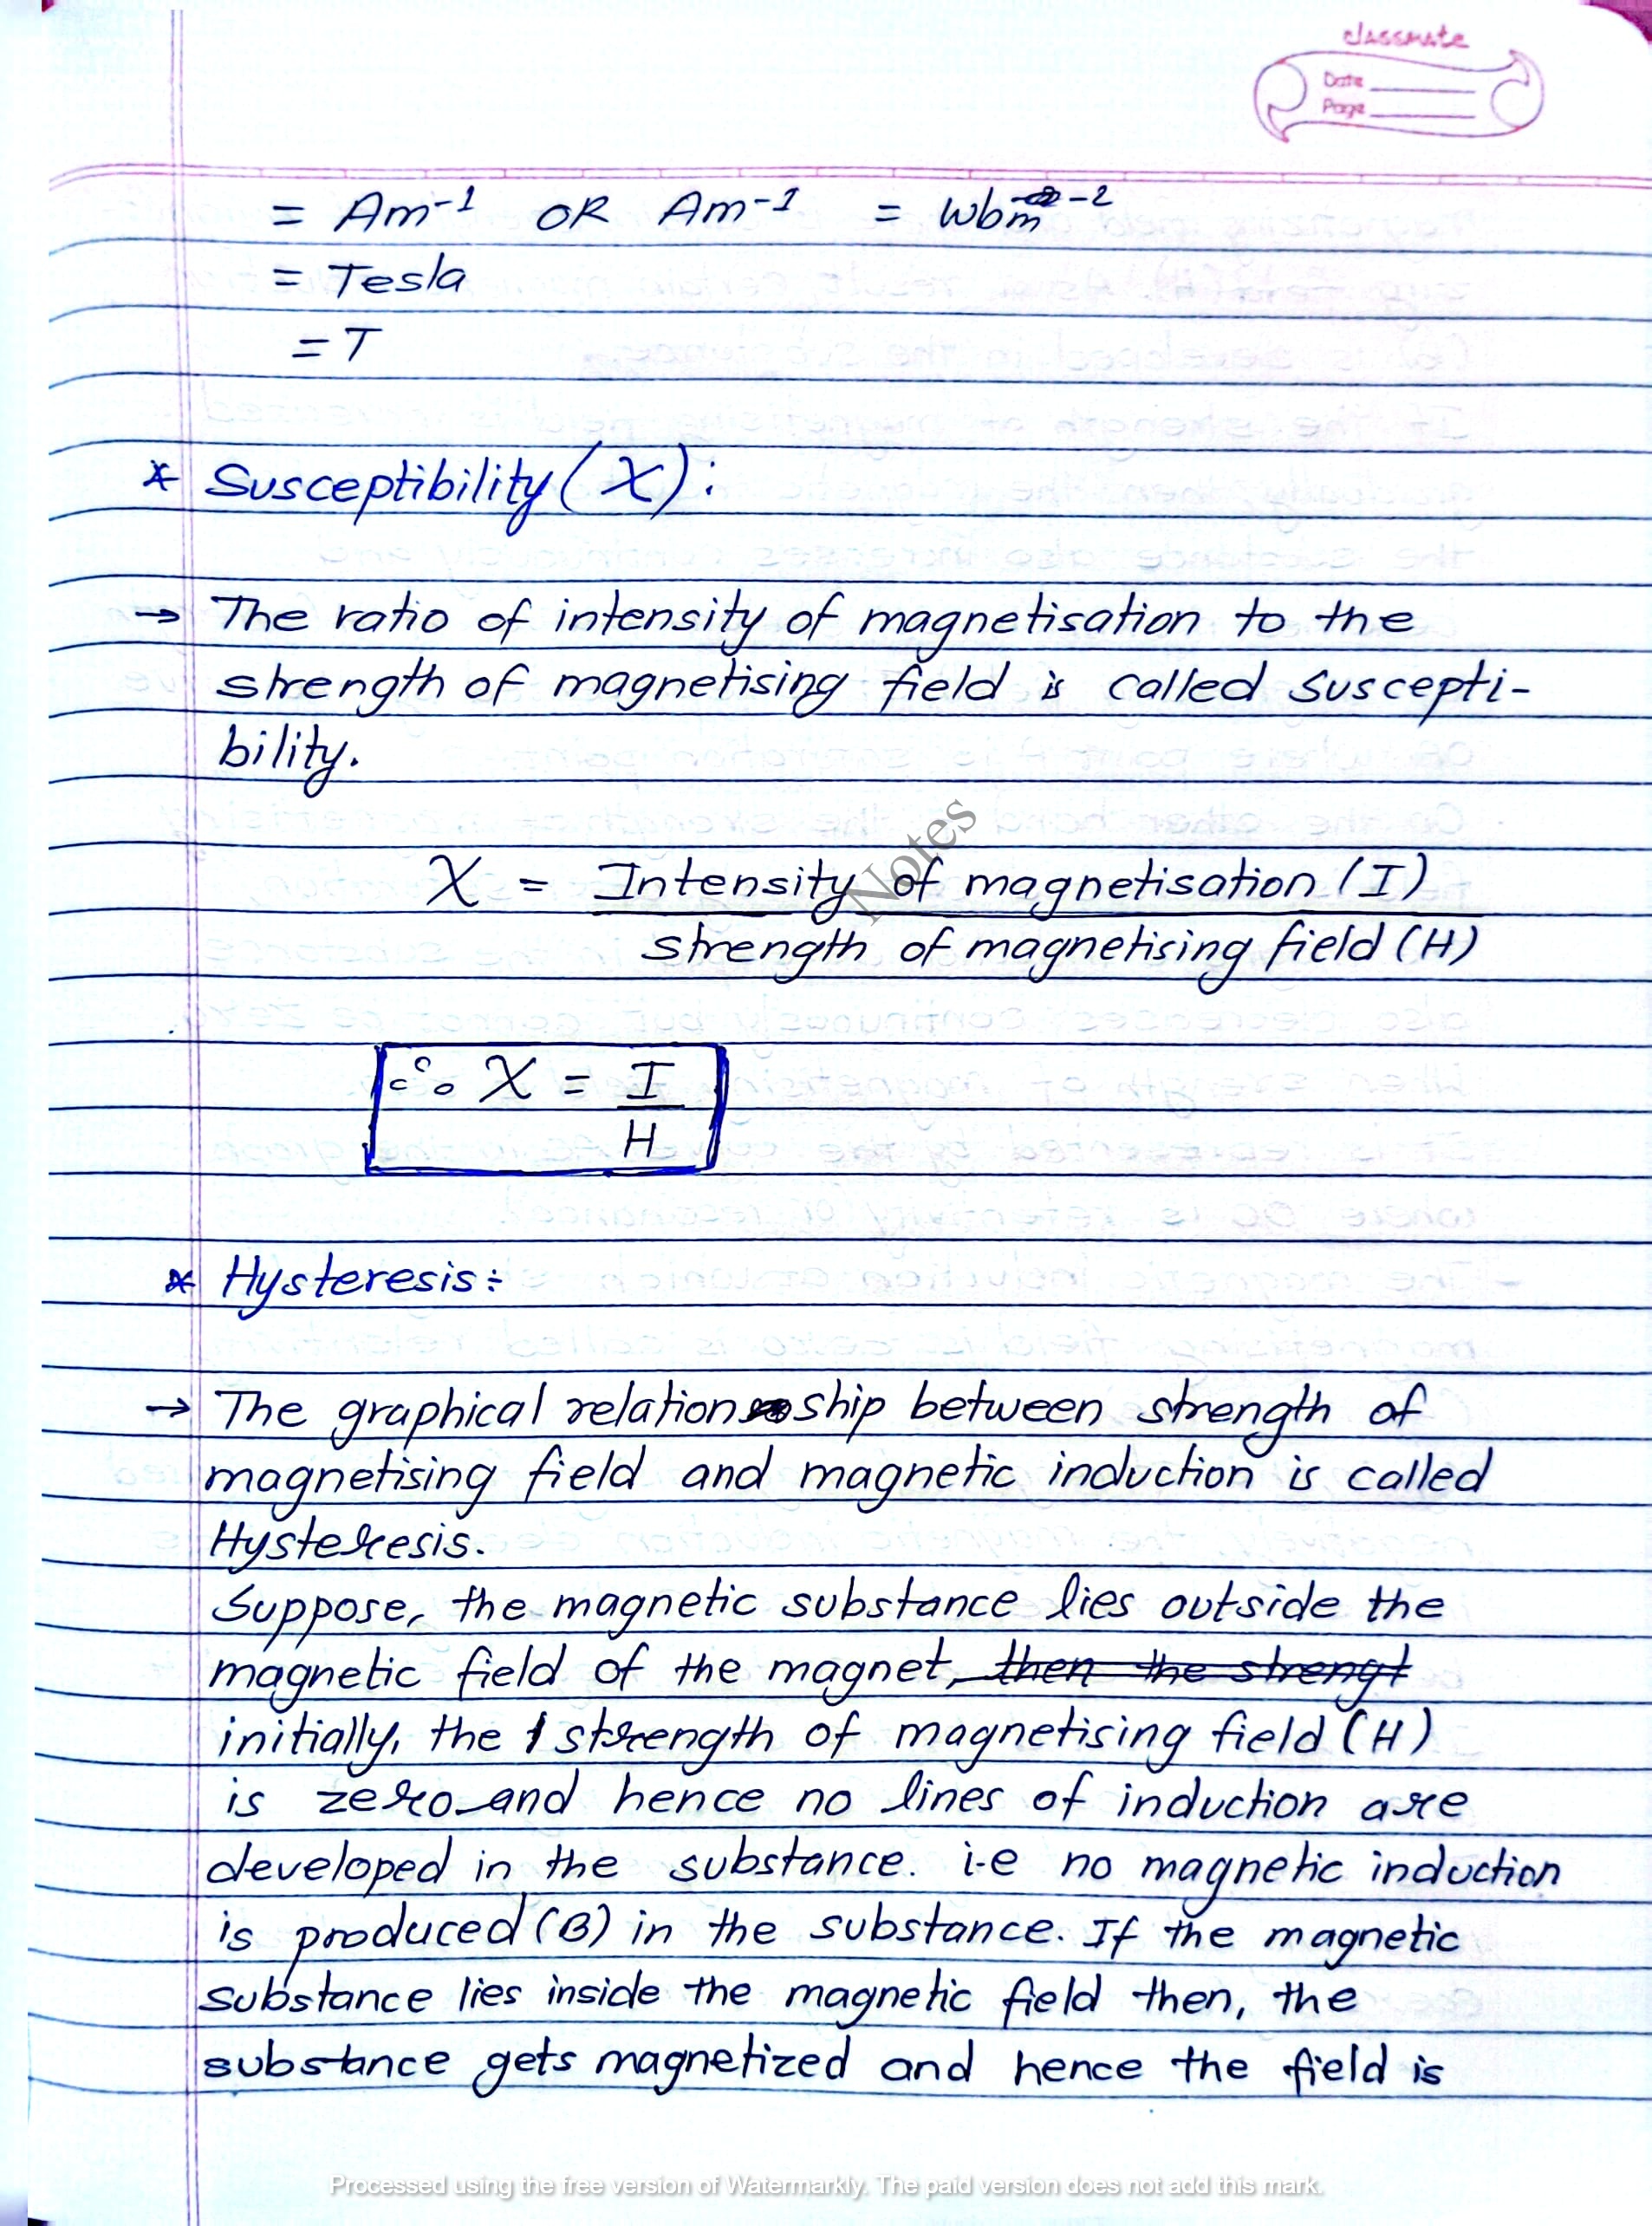 classmate
Date
Page
= Am⁻¹ OR Am⁻¹ = wbm⁻²
= Tesla
= T
* Susceptibility (χ):
→ The ratio of intensity of magnetisation to the
strength of magnetising field is called suscepti-
bility.
χ = Intensity of magnetisation (I)
strength of magnetising field (H)
Notes
∴ χ = I
H
* Hysteresis:
→ The graphical relationship between strength of
magnetising field and magnetic induction is called
Hysteresis.
Suppose, the magnetic substance lies outside the
magnetic field of the magnet, then the strengt
initially, the strength of magnetising field (H)
is zero and hence no lines of induction are
developed in the substance. i.e no magnetic induction
is produced (B) in the substance. If the magnetic
substance lies inside the magnetic field then, the
substance gets magnetized and hence the field is
Processed using the free version of Watermarkly. The paid version does not add this mark.